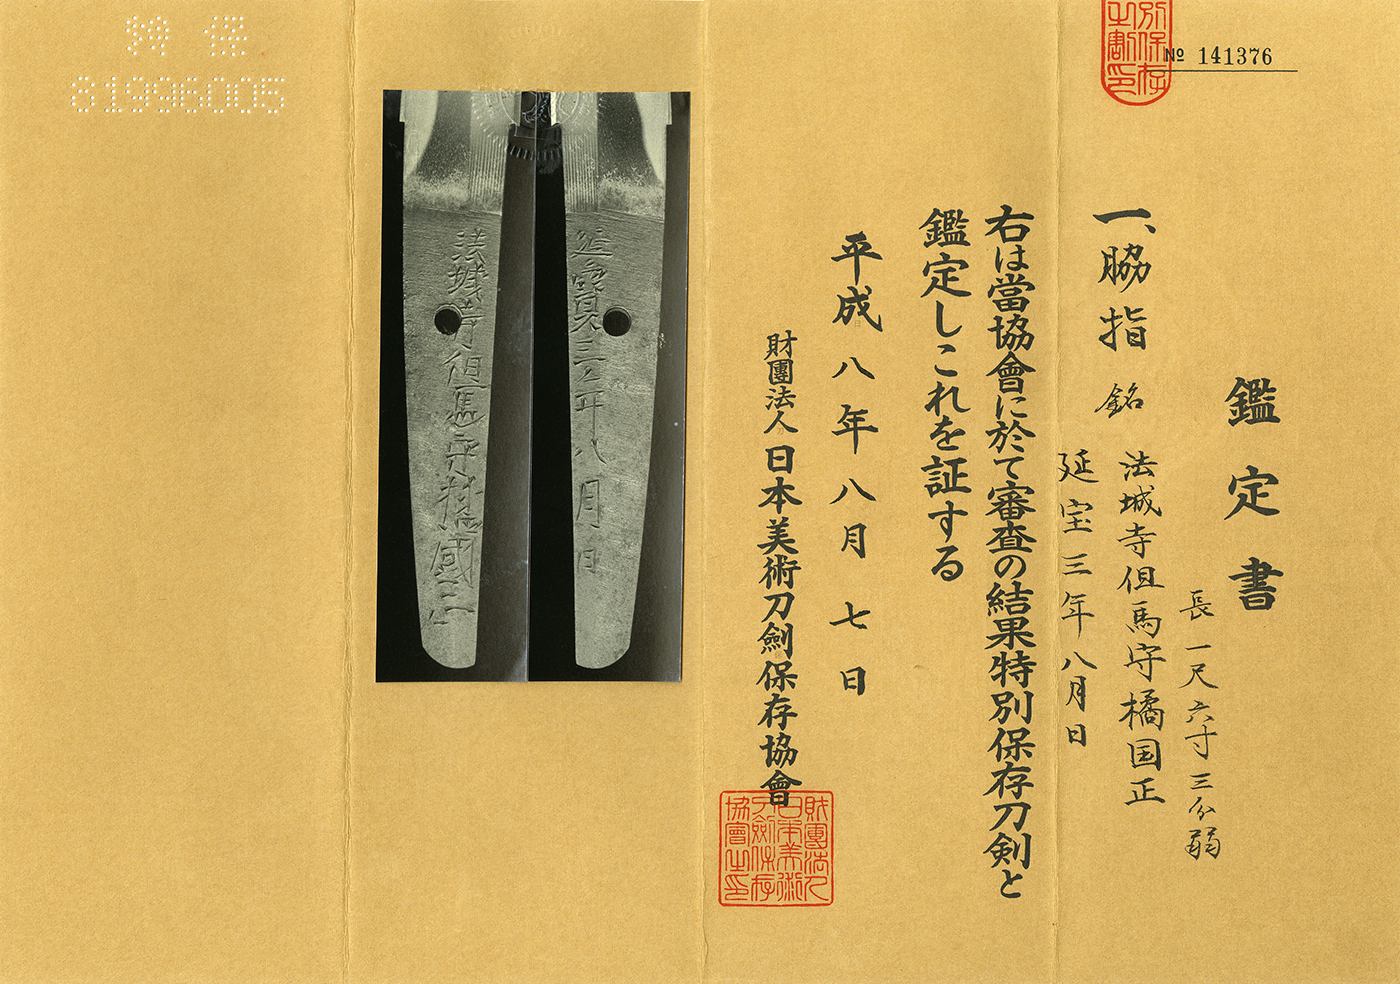 № 141376
鑑定書
長一尺六寸三分弱
一、脇指 銘 法城寺但馬守橘国正
延宝三年八月日
右は當協會に於て審査の結果特別保存刀剣と
鑑定しこれを証する
平成八年八月七日
財團法人日本美術刀劍保存協會
財團法人
日本美術
刀劍保存
協會之印
延寳三乙年八月日
法城寺但馬守橘國正
特保
81996005